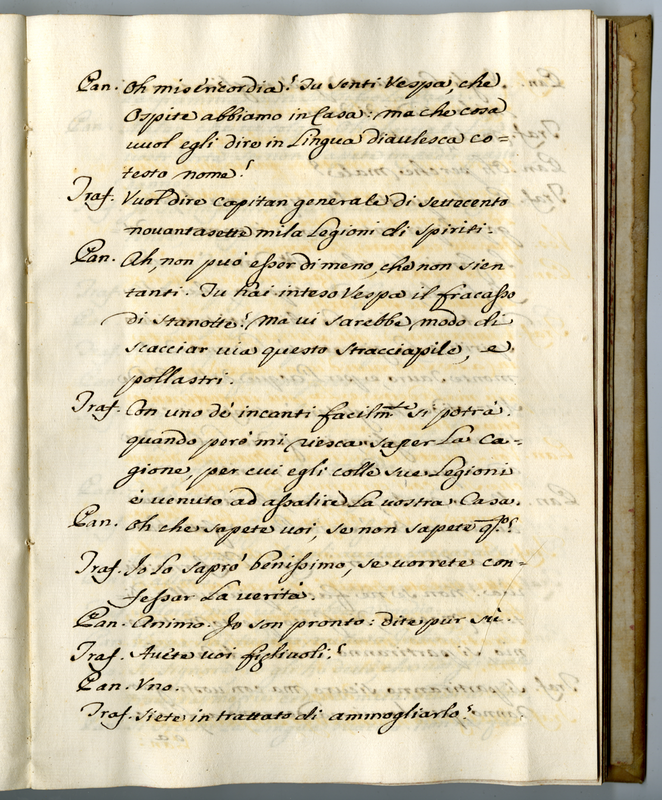 Pan. Oh misericordia! Tu senti Vespa, che
Ospite abbiamo in Casa: ma che cosa
vuol egli dire in Lingua diavolesca co=
testo nome?
Traf. Vuol dire capitan generale di settecento
novantasette mila Legioni di spiriti.
Pan. Ah, non può esser di meno, che non sien
tanti. Tu hai inteso Vespa il fracasso
di stanotte? Ma vi sarebbe modo di
scacciar via questo stracciapile, e
pollastri.
Traf. Con uno de incanti facilm.te si potrà.
quando però mi riesca saper la ca=
gione, per cui egli colle sue Legioni
è venuto ad assalire la vostra Casa.
Pan. Oh che sapete voi, se non sapete q.sto?
Traf. Io lo saprò benissimo, se vorrete con=
fessar la verità.
Pan. Animo. Io son pronto: dite pur sù.
Traf. Avete voi figliuoli?
Pan. Uno.
Traf. Siete in trattato di ammogliarlo?